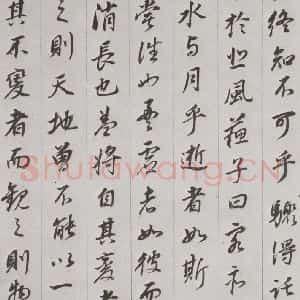 終知不可乎驟得託
於悲風蘇子曰客亦
水与月乎逝者如斯
嘗往也盈虛者如彼而
消長也蓋將自其變者
之則天地曾不能以一
其不變者而觀之則物
Shufawang.CN